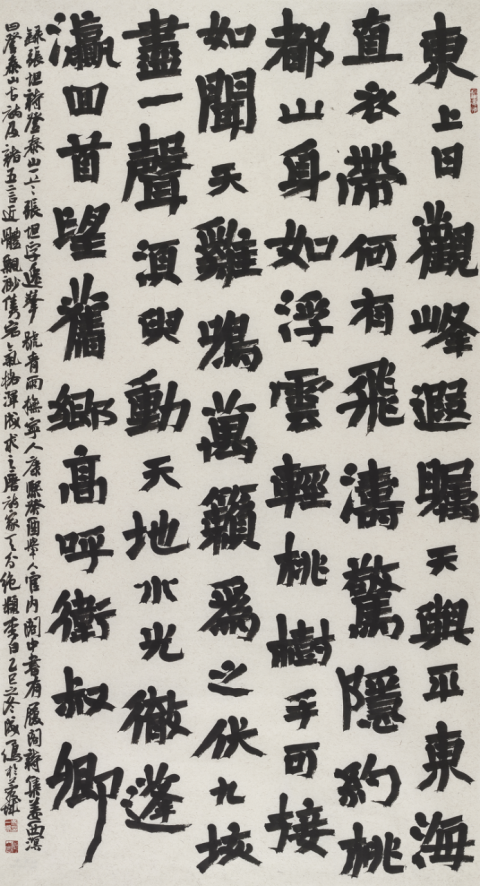 東上日觀峰遐矚天與平東海
直衣帶何有飛濤驚隱約桃
都山身如浮雲輕桃樹手可接
如聞天雞鳴萬籟爲之伏九垓
盡一聲湏臾動天地水光徹蓬
瀛回首望舊鄉高呼衛叔卿
錄張坦詩登泰山一二張坦字逸峯號青雨撫寧人康熙癸酉舉人官內閣中書有履閣詩集姜西溟
曰登泰山古詩及諸五言近體飄渺雋宕氣格渾成求之唐諸家天分絕類李白乙巳之冬